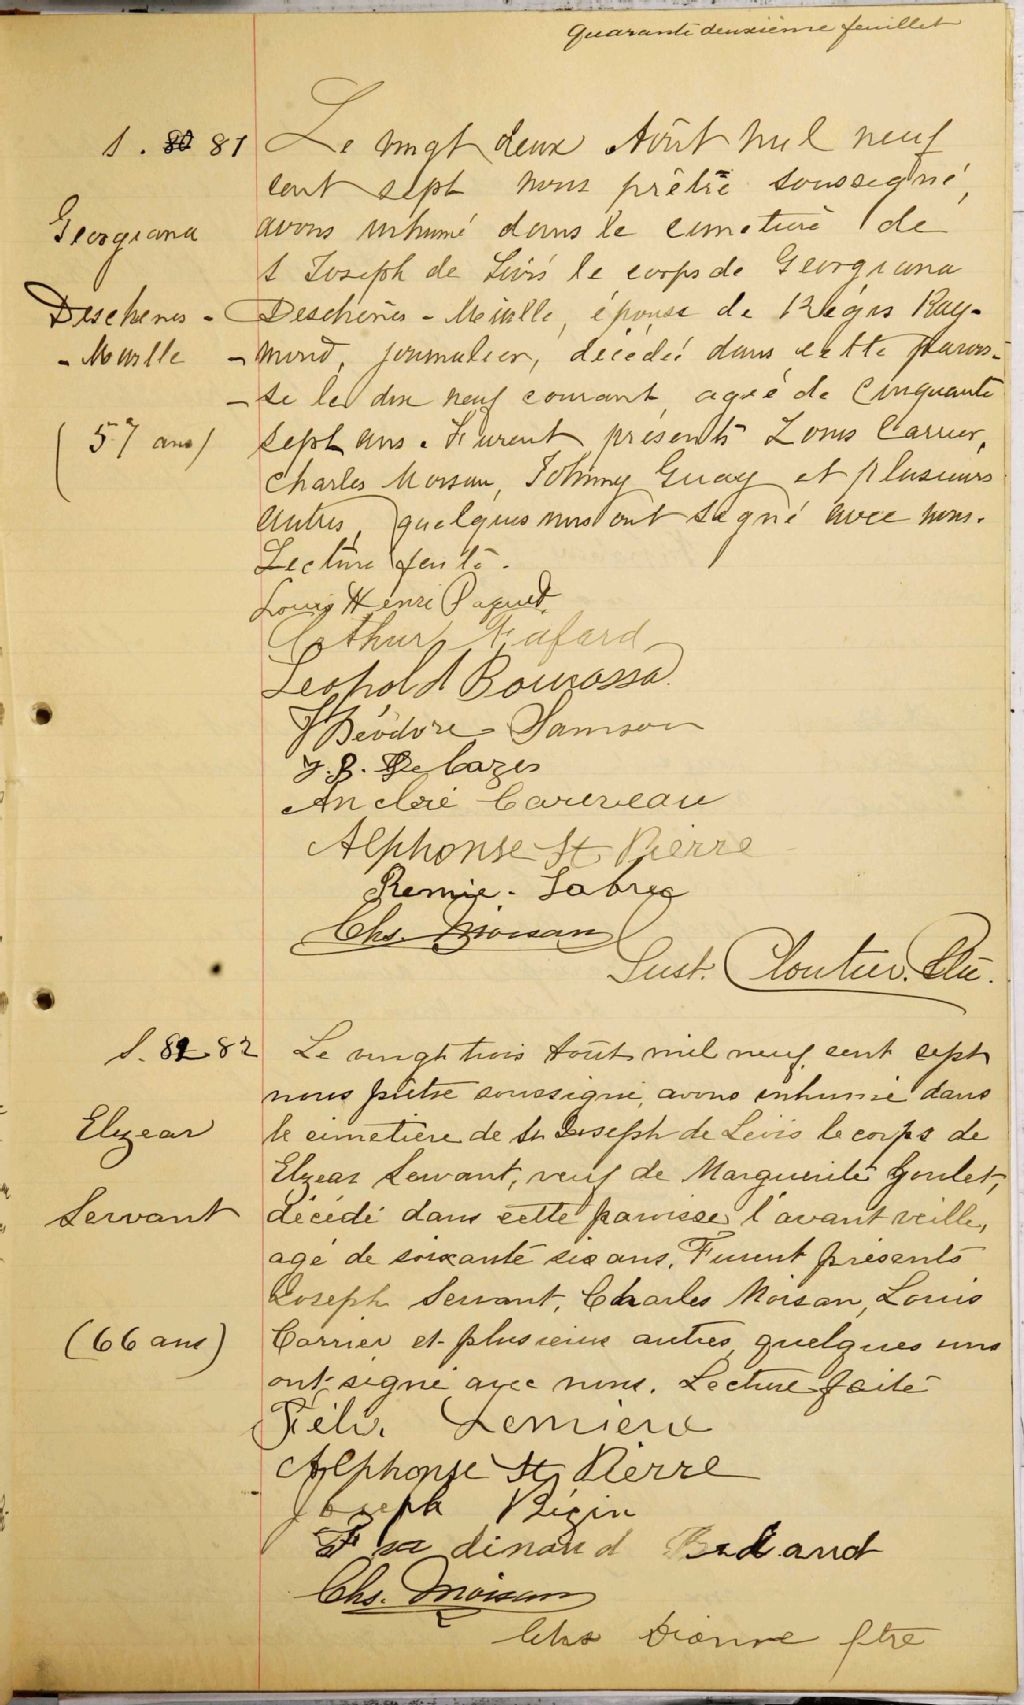 Quarante deuxième feuillet
S. 80 81
Le vingt deux Août mil neuf
cent sept nous prêtre soussigné,
Georgiana
avons inhumé dans le cimetière de
S Joseph de Lévis le corps de Georgiana
Deschenes -
Deschènes - Miville, épouse de Régis Ray-
- Miville
- mond, journalier, décédée dans cette parois-
- se le dix neuf courant, agée de cinquante
(57 ans)
sept ans. Furent présents Louis Carrier,
Charles Moisan, Johnny Guay et plusieurs
autres, quelques uns ont signé avec nous.
Lecture faite.
Louis Henri Paquet
Arthur Fafard
Leopold Bourassa
Théodore Samson
J. B. De Cazes
André Carreau
Alphonse St Pierre
Remie. Labrec
Chs. Moisan
Cloutier. Ptre.
S. 82 82
Le vingt trois Août mil neuf cent sept
nous prêtre soussigné, avons inhumé dans
Elzear
le cimetière de St Joseph de Lévis le corps de
Elzear Servant, veuf de Marguerite Goulet,
Servant
décédé dans cette paroisse l'avant veille,
agé de soixante six ans. Furent présents
Joseph Servant, Charles Moisan, Louis
(66 ans)
Carrier et plusieurs autres, quelques uns
ont signé avec nous. Lecture faite
Félix Lemieux
Alphonse St Pierre
Joseph Bégin
Ferdinand Bedard
Chs. Moisan
Dionne ptre